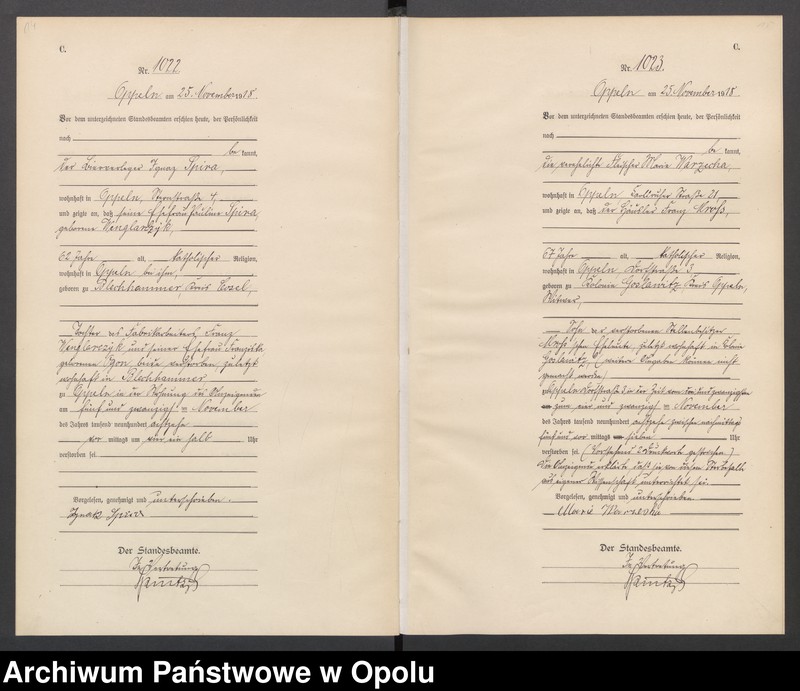 C.
Nr. 1022.
Oppeln am 25. November 1918.
Vor dem unterzeichneten Standesbeamten erschien heute, der Persönlichkeit
nach
be kannt,
der Bierverleger Ignaz Spira,
wohnhaft in Oppeln,
und zeigte an, daß seine Ehefrau Pauline Spira,
geborene Wenglarzyk,
62 Jahr alt, katholischer Religion,
wohnhaft in Oppeln bei ihm,
geboren zu Blechhammer, Kreis Cosel,
Tochter des Fabrikarbeiters Franz
Wenglarczyk und seiner Ehefrau Franziska
geborenen beide verstorben zuletzt
wohnhaft in Blechhammer
zu Oppeln in der Wohnung des Anzeigenden
am fünf und zwanzigsten November
des Jahres tausend neunhundert achtzehn
vor mittags um vier ein halb Uhr
verstorben sei.
Vorgelesen, genehmigt und unterschrieben.
Ignatz Spira
Der Standesbeamte.
In Vertretung
C.
Nr. 1023.
Oppeln am 25. November 1918.
Vor dem unterzeichneten Standesbeamten erschien heute, der Persönlichkeit
nach
be kannt,
die verehelichte Marie Warzecha,
wohnhaft in Oppeln Karlsruher Straße 21
und zeigte an, daß der Häusler Franz
67 Jahr alt, katholischer Religion,
wohnhaft in Oppeln, Straße 3
geboren zu Kolonie Goslawitz, Kreis Oppeln,
Witwer,
Sohn der verstorbenen Stellenbesitzer
Eheleute zuletzt wohnhaft in
Goslawitz (weitere Angaben können nicht
gemacht werden)
zu Oppeln 3 in der Zeit vom und zwanzigsten
zum vier und zwanzigsten November
des Jahres tausend neunhundert achtzehn zwischen nachmittags
fünf und vor mittags sieben Uhr
verstorben sei. (Vorstehend 2 Druckworte gestrichen)
Die Anzeigende erklärte, daß sie von diesem Sterbefalle
aus eigener Wissenschaft unterrichtet sei.
Vorgelesen, genehmigt und unterschrieben.
Marie Warzecha
Der Standesbeamte.
In Vertretung
Archiwum Państwowe w Opolu